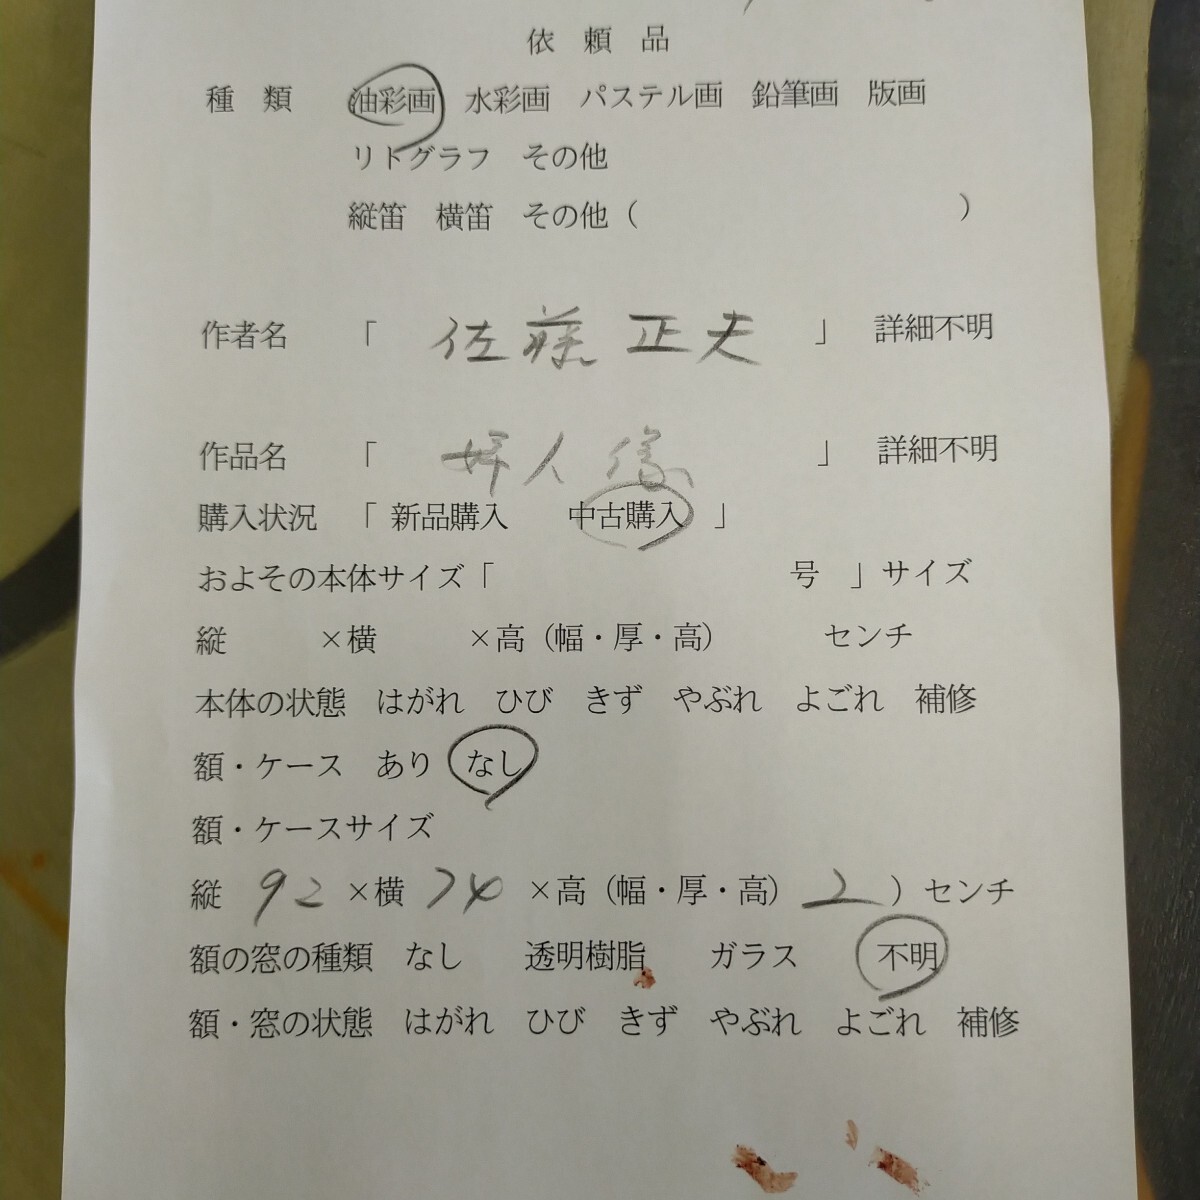 依頼品
種類 油彩画 水彩画 パステル画 鉛筆画 版画
リトグラフ その他
縦笛 横笛 その他( )
作者名 「 佐藤 正夫 」 詳細不明
作品名 「 婦人像 」 詳細不明
購入状況 「 新品購入 中古購入 」
およその本体サイズ「 号 」サイズ
縦 ×横 ×高(幅・厚・高) センチ
本体の状態 はがれ ひび きず やぶれ よごれ 補修
額・ケース あり なし
額・ケースサイズ
縦 92 ×横 74 ×高(幅・厚・高) 2 )センチ
額の窓の種類 なし 透明樹脂 ガラス 不明
額・窓の状態 はがれ ひび きず やぶれ よごれ 補修